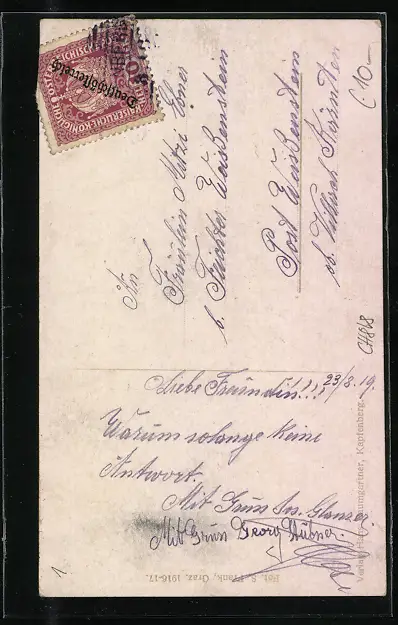 An
Fräulein Mitzi Ebner
b. Fichter Weißenstein
Post Weißenstein
ob. Villach Kärnten
(10—
CH868
Liebe Freundin!!! 23/8.19.
Warum solange keine
Antwort.
Mit Gruss Jos. Glanzer.
Mit Gruss Georg Hübner.
Verlag Baumgartner, Kapfenberg.
Fot. S. Frank, Graz. 1916-17.
Deutschösterreich
1